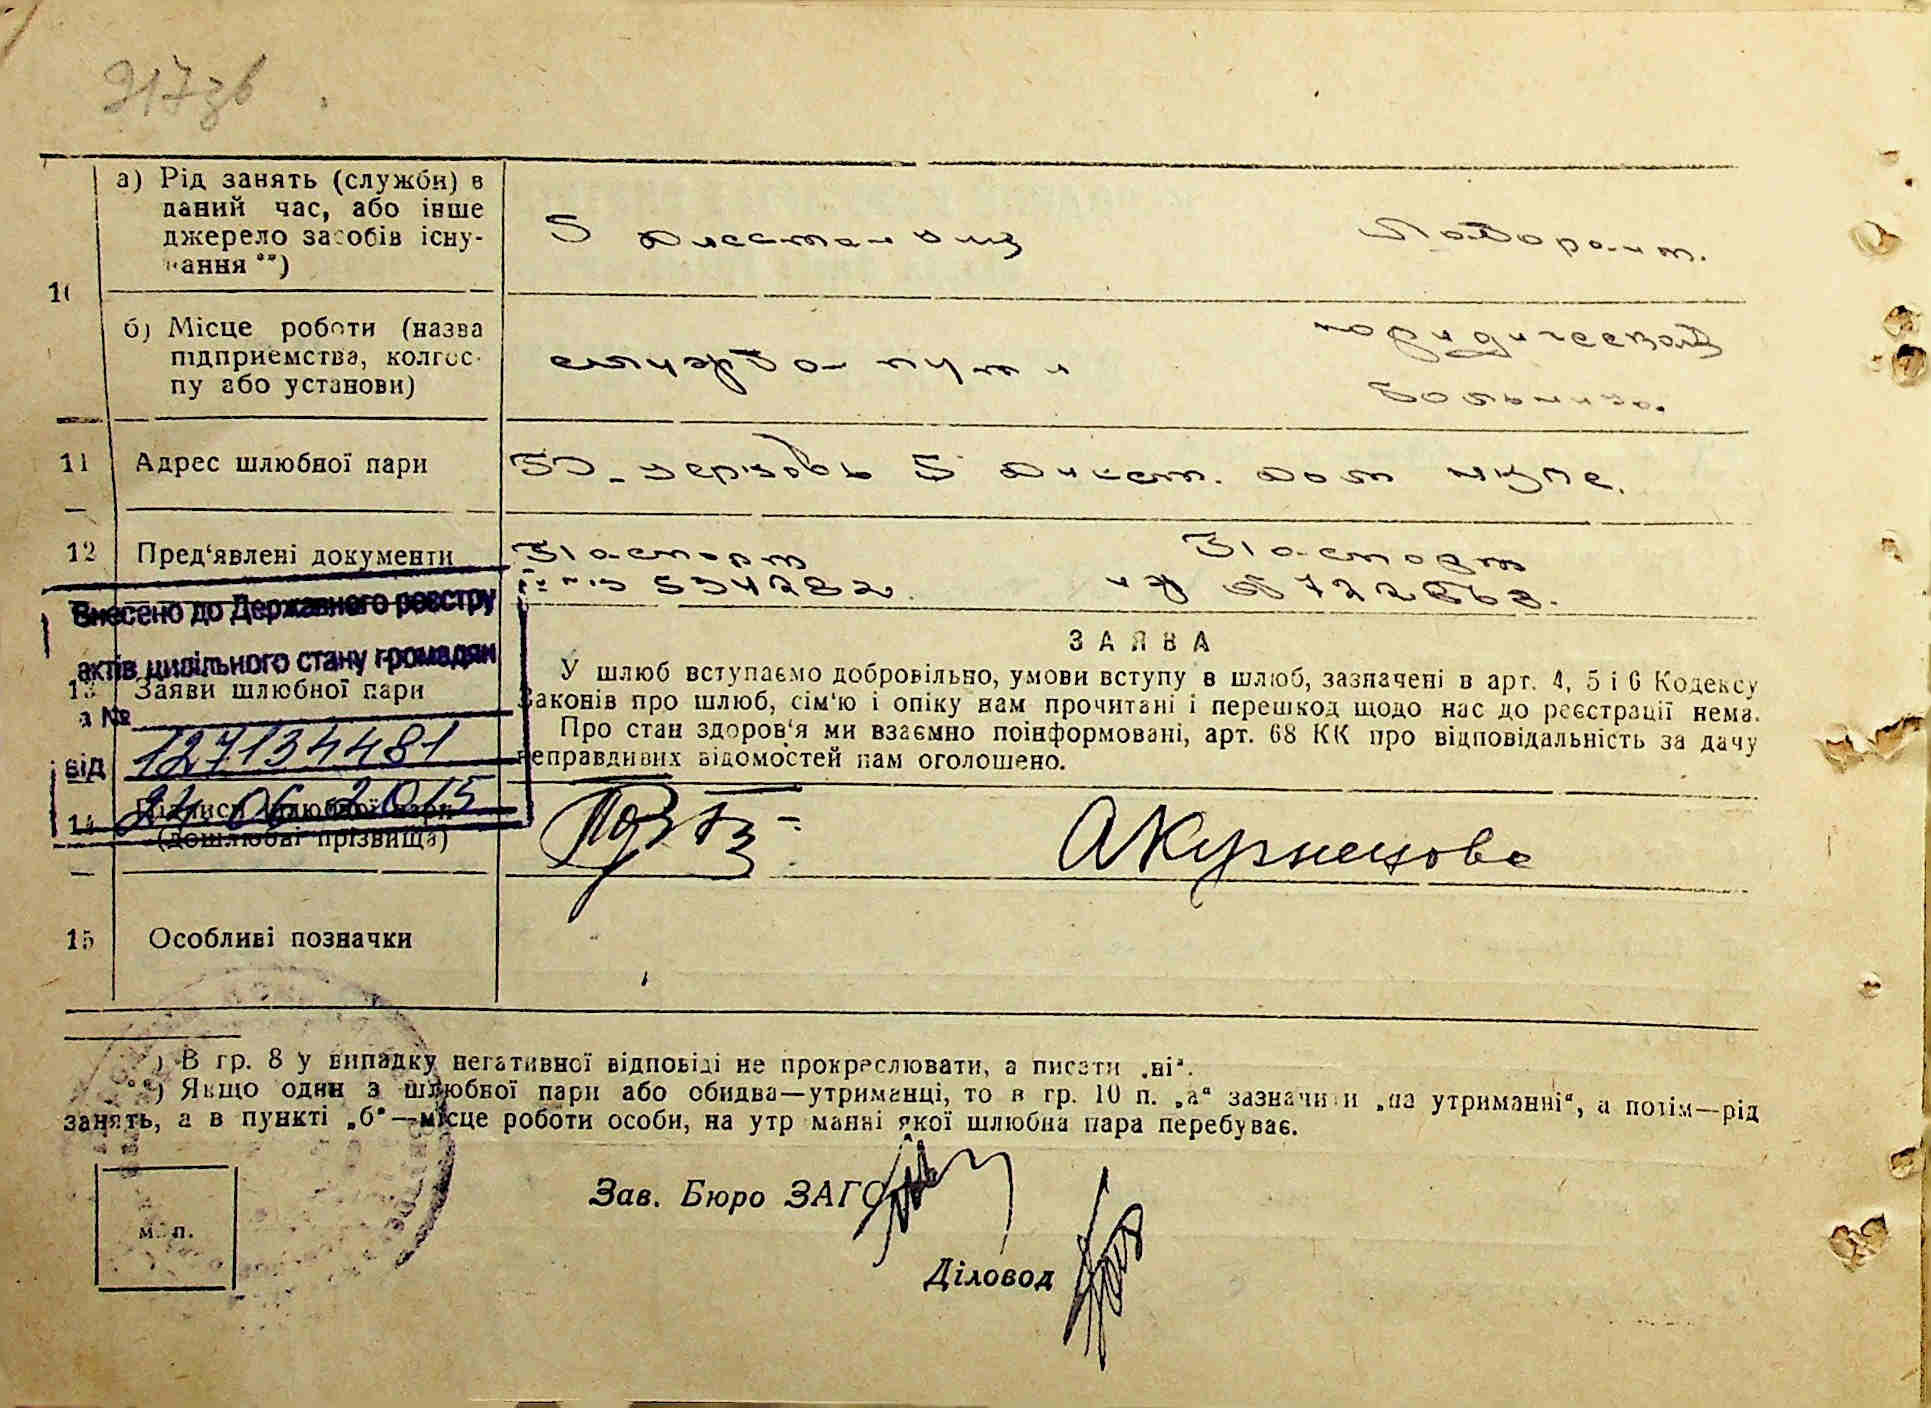 917зв
10
а) Рід занять (служби) в
даний час, або інше
джерело засобів існу-
вання **)
5
Лаборант.
б) Місце роботи (назва
підприємства, колгос-
пу або установи)
служба пути
больница.
11 Адрес шлюбної пари
5 дист. дом
12 Пред'явлені документи
Паспорт Паспорт
534282
Внесено до Державного реєстру
актів цивільного стану громадян
за №
127134481
від 24 06 2015
13 Заяви шлюбної пари
ЗАЯВА
У шлюб вступаємо добровільно, умови вступу в шлюб, зазначені в арт. 4, 5 і 6 Кодексу
Законів про шлюб, сім'ю і опіку нам прочитані і перешкод щодо нас до реєстрації нема.
Про стан здоров'я ми взаємно поінформовані, арт. 68 КК про відповідальність за дачу
неправдивих відомостей нам оголошено.
14 Підписи шлюбної пари
(дошлюбні прізвища)
АКузнецова
15 Особливі позначки
*) В гр. 8 у випадку негативної відповіді не прокреслювати, а писати „ні“.
**) Якщо один з шлюбної пари або обидва—утриманці, то в гр. 10 п. „а“ зазначити „на утриманні“, а потім—рід
занять, а в пункті „б“—місце роботи особи, на утриманні якої шлюбна пара перебуває.
Зав. Бюро ЗАГС
м. п.
Діловод